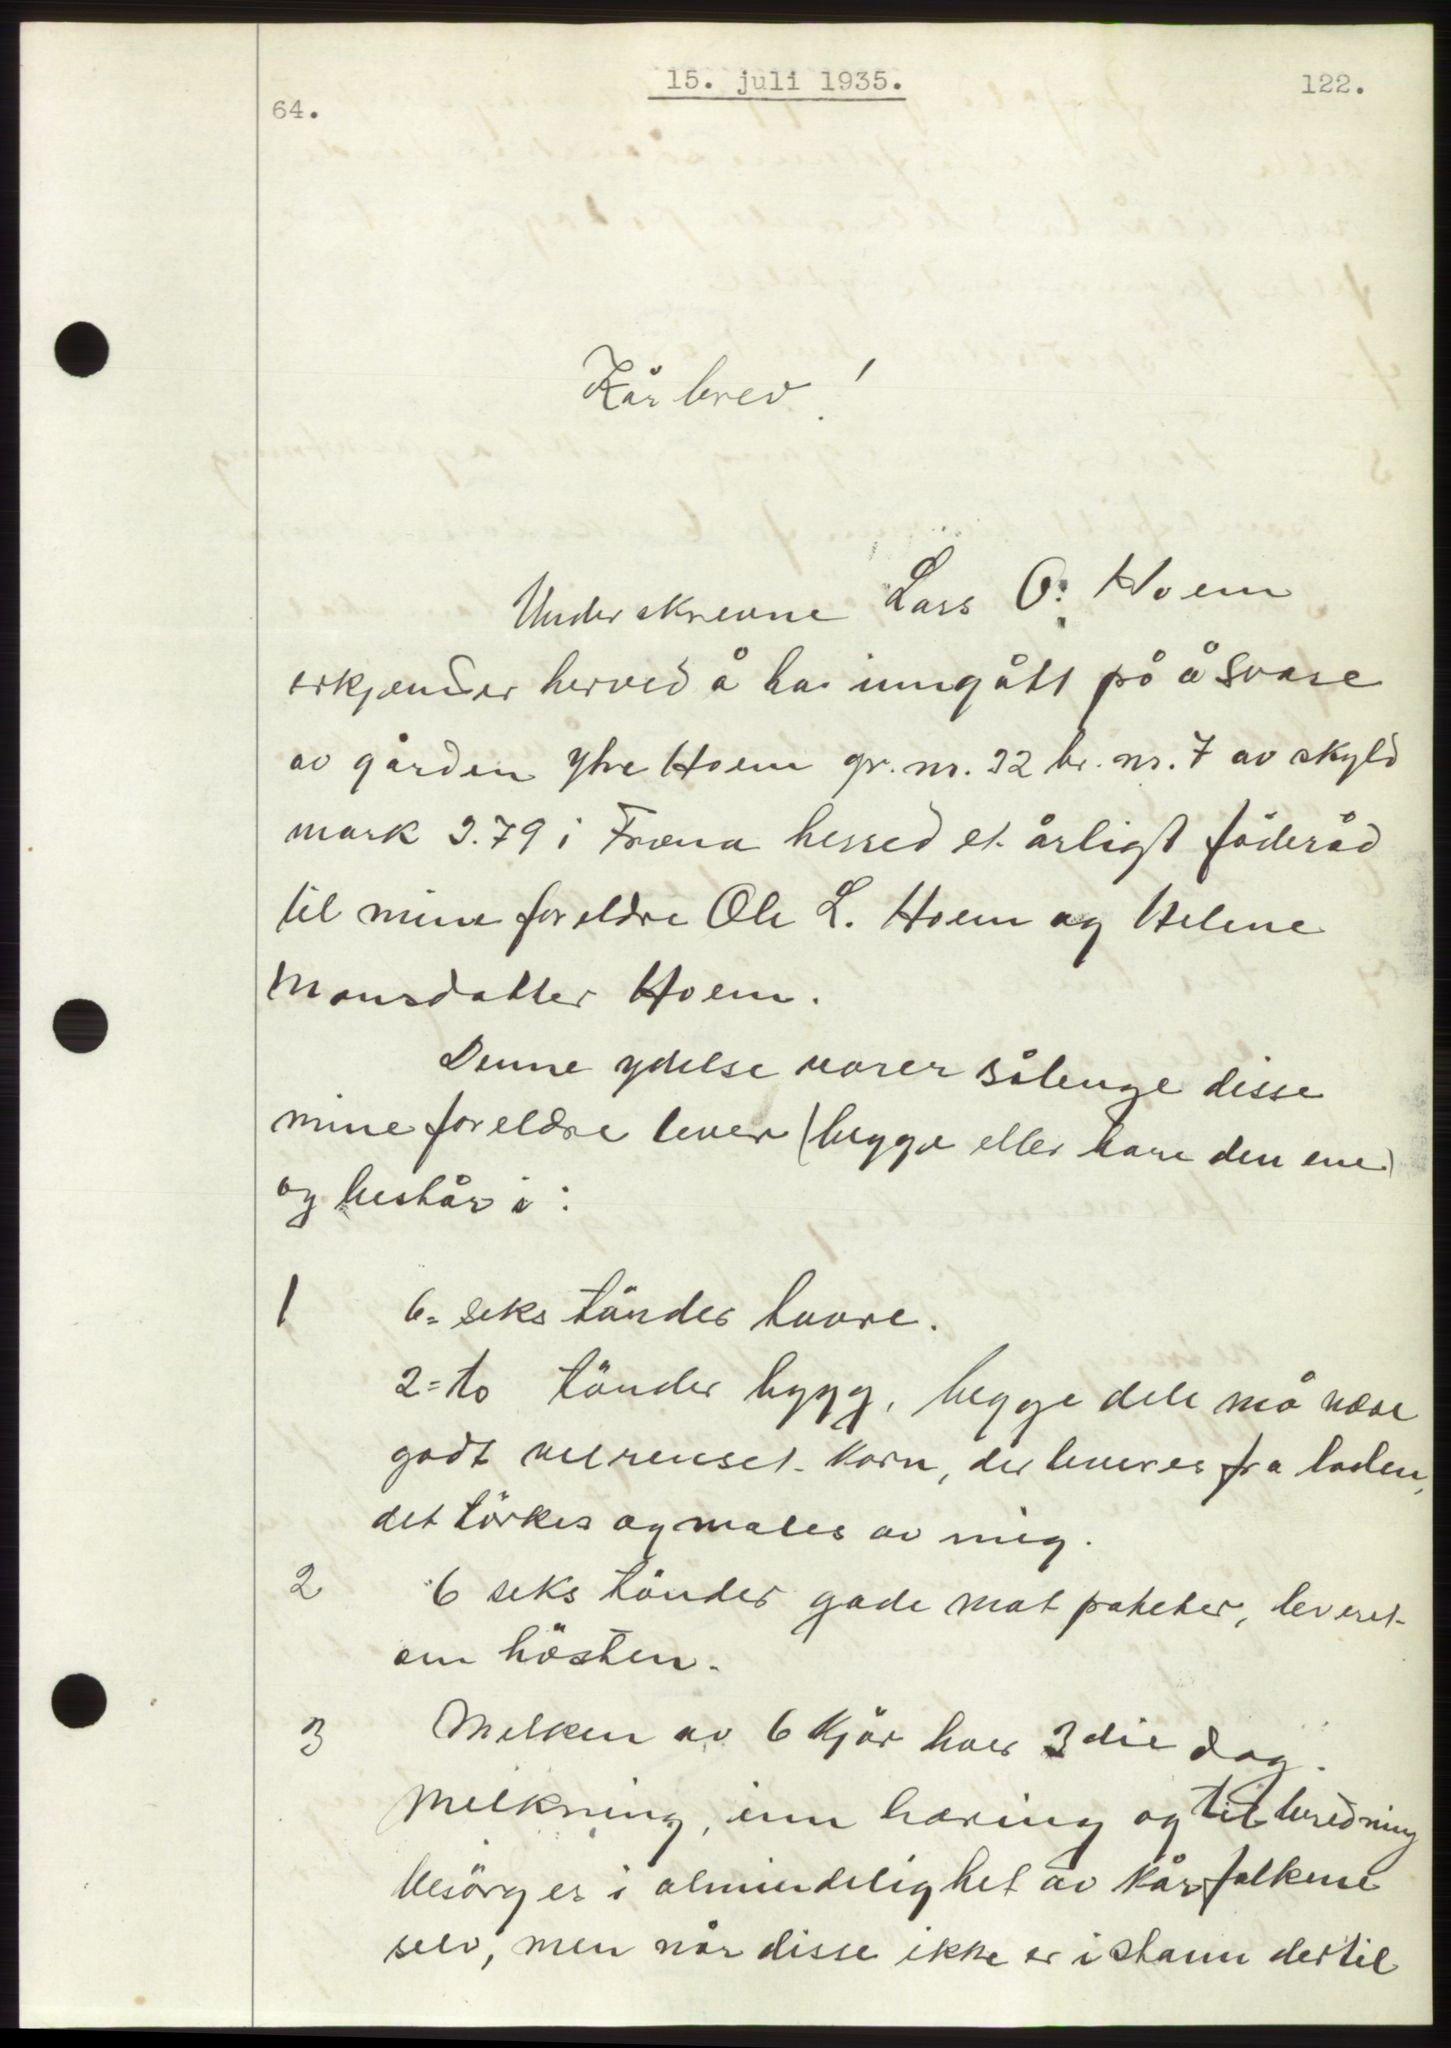 15. juli 1935.
122.
64.
Kårbrev!
Underskrevne Lars O. Hoem
erkjender herved å ha inngått på å svare
av gården Ytre Hoem gr. nr. 32 br. nr. 7 av skyld
mark 3.79 i Fræna herred et årligt föderåd
til mine foreldre Ole L. Hoem og Helene
Monsdatter Hoem.
Denne ydelse varer sålenge disse
mine foreldre lever (begge eller bare den ene)
og består i:
1 6= seks tönder havre.
2= to tönder bygg, begge dele må være
godt velrenset korn, der leveres fra laden,
det törkes og males av mig.
2 6 seks tönder gode mat poteter, leveret
om hösten.
3 Melken av 6 kjör hver 3die dag.
Melkning, innbæring og tilberedning
besörges i almindelighet av kårfolkene
selv, men når disse ikke er istann dertil